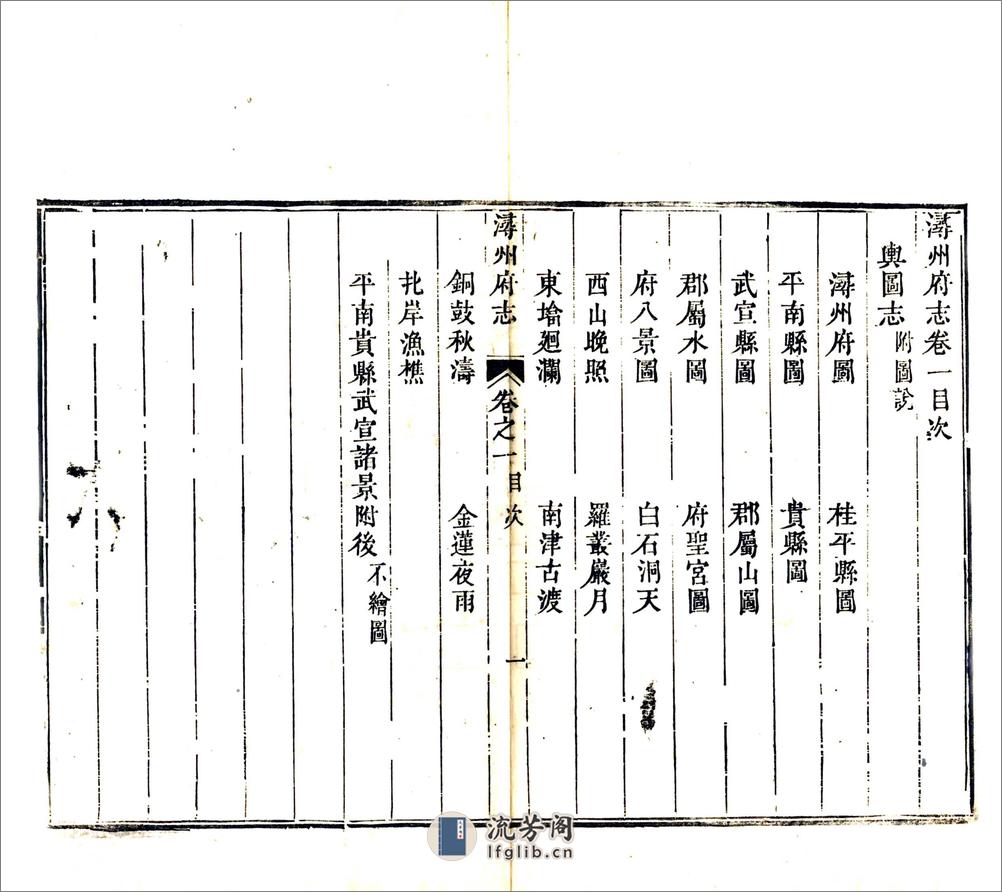 潯州府志卷一目次
輿圖志附圖說
潯州府圖 桂平縣圖
平南縣圖 貴縣圖
武宣縣圖 郡屬山圖
郡屬水圖 府聖宮圖
府八景圖 白石洞天
西山晚照 羅叢巖月
東墖廻瀾 南津古渡
潯州府志 卷之一目次 一
銅鼓秋濤 金蓮夜雨
北岸漁樵
平南貴縣武宣諸景附後不繪圖
流芳阁
lfglib.cn